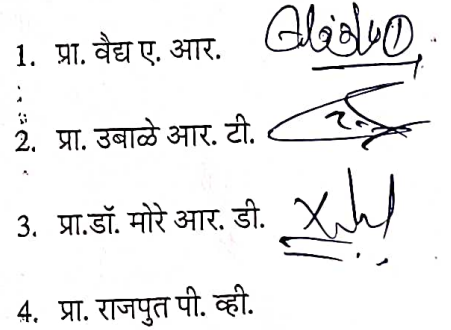 1. प्रा. वैद्य ए. आर.
2. प्रा. उबाळे आर. टी.
3. प्रा.डॉ. मोरे आर. डी.
4. प्रा. राजपुत पी. व्ही.